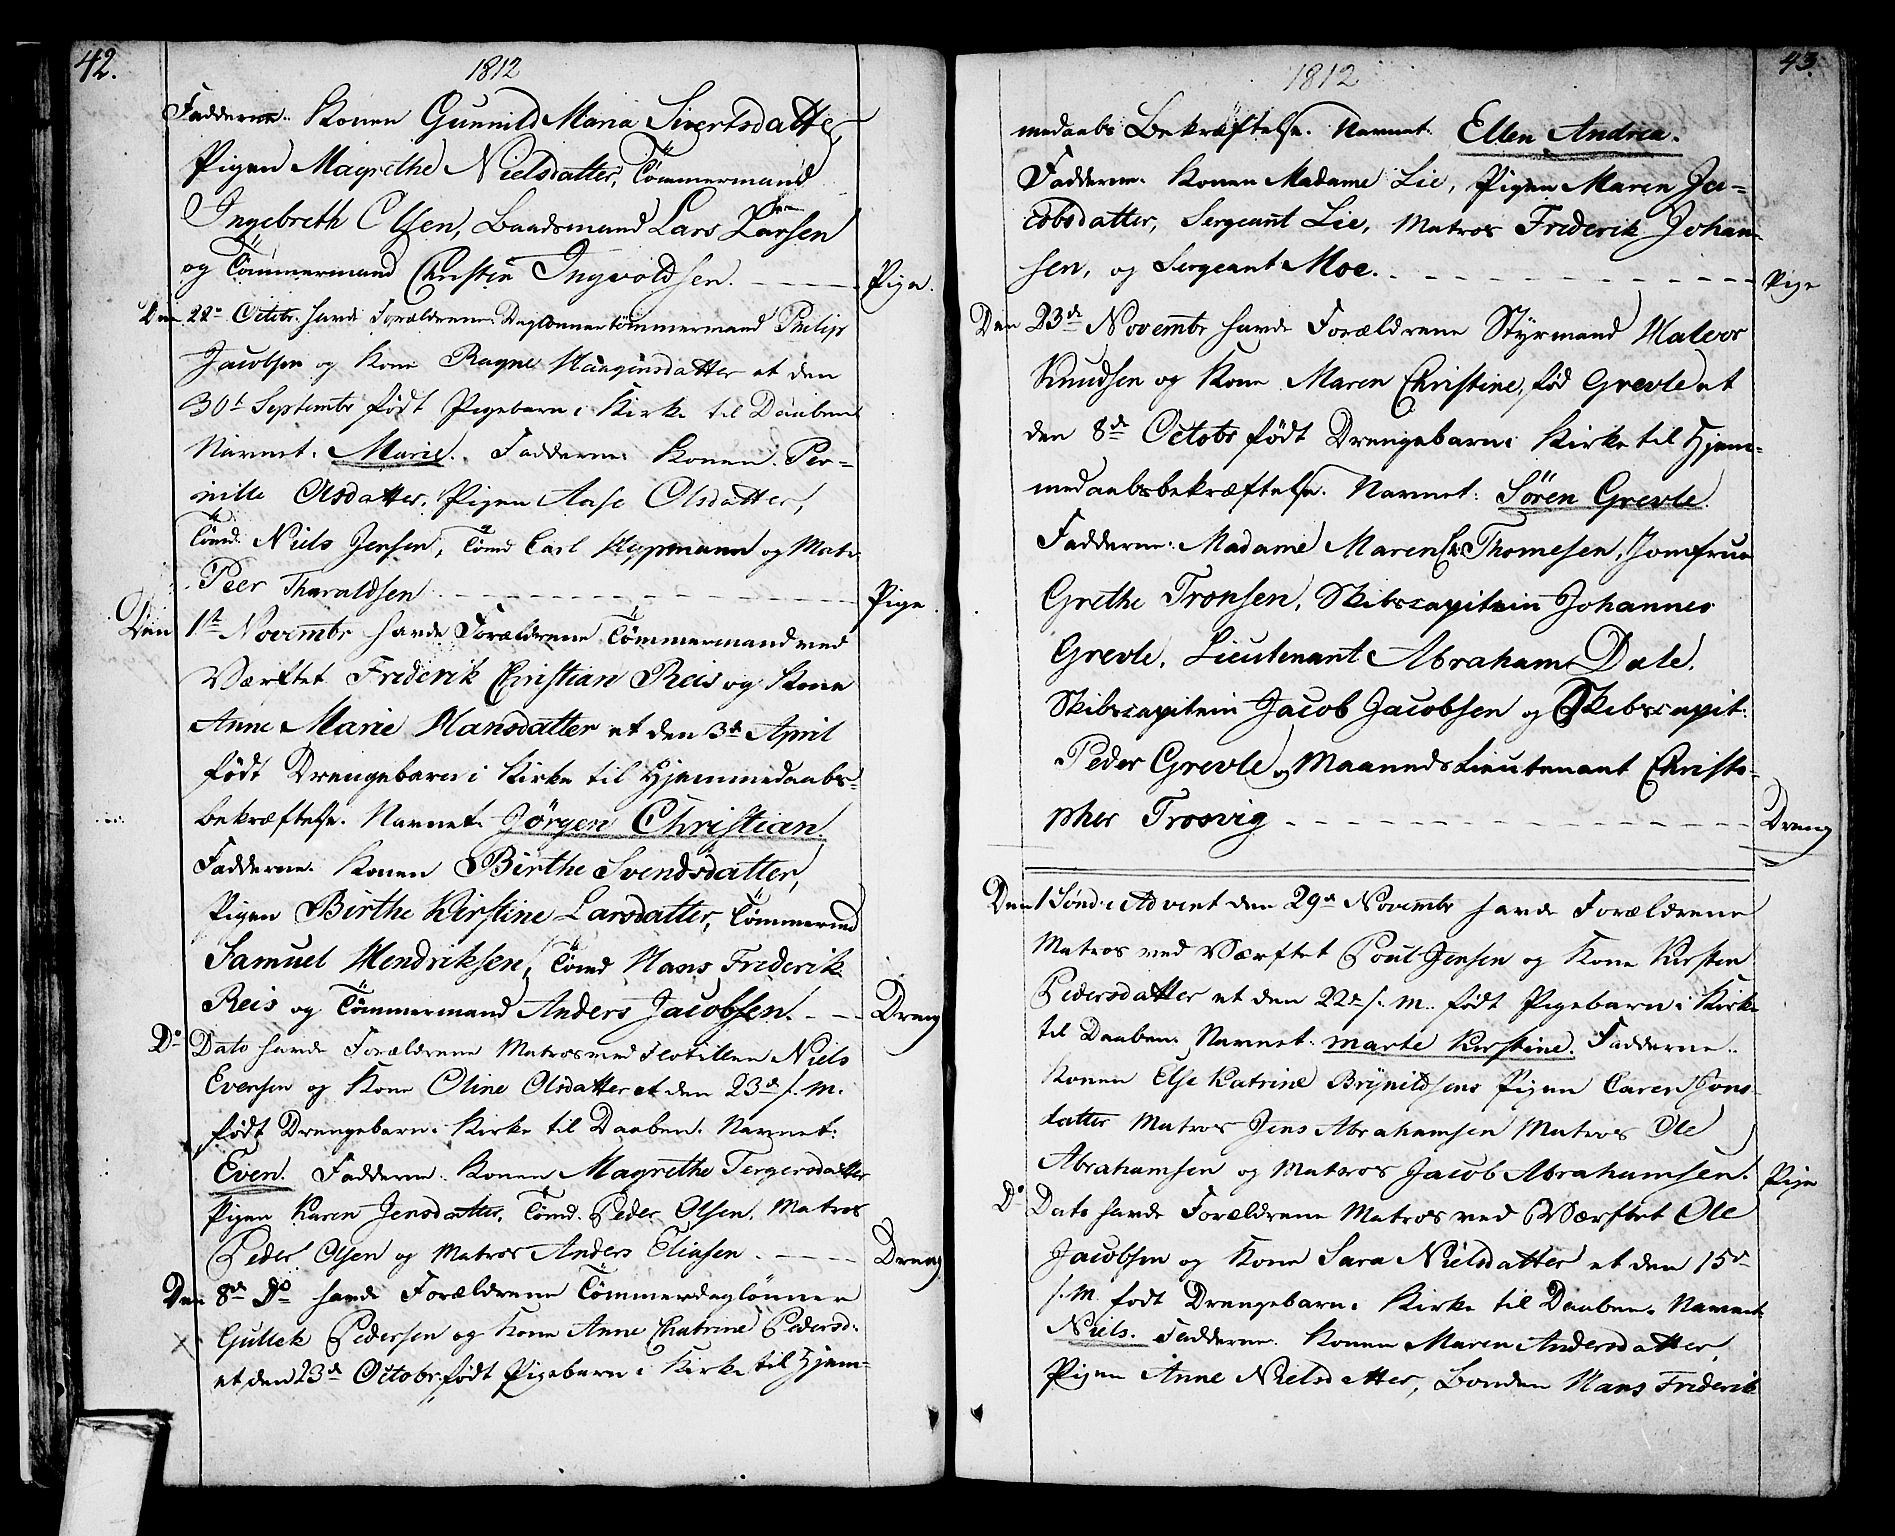 42.
1812
Fadderne. Konen Gunnild Maria Sivertsdatter,
Pigen Magrethe Nielsdatter, Tömmermand
Ingebreth Olsen, Baadsmand Lars Larsen
og Tömmermand Christen Ingvoldsen. Pige.
Den 22de Octobr. havde Forældrene Daglønnertömmermand Philip
Jacobsen og Kone Ragne Haagensdatter et den
30t Septembr født Pigebarn i Kirke til Daaben
Navnet: Marie. Fadderne: Konen Per-
nille Olsdatter, Pigen Aase Olsdatter,
Tömd. Niels Jensen, Tömd Carl Hoppmann og Matr.
Peer Tharaldsen Pige.
Den 1te Novembr havde Forældrene Tömmermand ved
Værftet Friderik Christian Reis og Kone
Anne Marie Hansdatter et den 3de April
født Drengebarn i Kirke til Hjemmedaabs-
bekræftelse. Navnet: Jörgen Christian.
Fadderne. Konen Birthe Svendsdatter,
Pigen Birthe Kirstine Larsdatter, Tömmermd
Samuel Hendriksen, Tömd Hans Friderik
Reis og Tömmermand Anders Jacobsen. Dreng
Do Dato havde Forældrene Matros ved Flotillen Niels
Evensen og Kone Oline Olsdatter et den 23de f. M.
født Drengebarn i Kirke til Daaben. Navnet:
Even. Fadderne: Konen Magrethe Tergersdatter
Pigen Karen Jensdatter, Tömd. Peder Olsen, Matros
Peder Olsen og Matros Anders Eliasen. Dreng
Den 8de Do havde Forældrene Tömmerdaglönner
Gullek Pedersen og Kone Anne Chatrine Pedersd.
et den 23de Octobr født Pigebarn i Kirke til Hjem-
43.
1812
medaabs Bekræftelse. Navnet: Ellen Andrea.
Fadderne. Konen Madame Lie, Pigen Maren Ja-
cobsdatter, Sergeant Lie, Matros Friderik Johan-
sen, og Sergeant Moe. Pige
Den 23de Novembr havde Forældrene Styrmand Halvor
Knudsen og Kone Maren Christine, fød Grevle et
den 8de Octobr født Drengebarn i Kirke til Hjem-
medaabsbekræftelse. Navnet: Søren Grevle
Fadderne: Madame Maren Thomesen, Jomfrue
Grethe Tronsen, Skibscapitein Johannes
Grevle, Lieutenant Abraham Dale,
Skibscapitein Jacob Jacobsen og Skibscapit:
Peder Grevle og Maaneds Lieutenant Christo-
pher Trosvig Dreng
Den 1 Sønd. i Advent den 29de Novembr havde Forældrene
Matros ved Værftet Poul Jensen og Kone Kirsten
Pedersdatter et den 22de f. M. født Pigebarn i Kirke
til Daaben. Navnet: Marte Kirstine. Fadderne.
Konen Else Katrine Brynildsens Pigen Caren Jons-
datter Matros Jens Abrahamsen Matros Ole
Abrahamsen og Matros Jacob Abrahamsen. Pige
Do Dato havde Forældrene Matros ved Værftet Ole
Jacobsen og Kone Sara Nielsdatter et den 15de
f. M. født Drengebarn i Kirke til Daaben. Navnet
Niels. Fadderne. Konen Maren Andersdatter,
Pigen Anne Nielsdatter, Bonden Hans Friderik